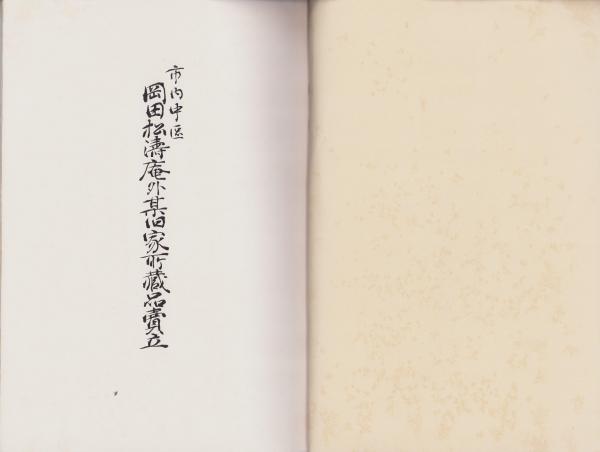 市内中区
岡田松濤庵外某旧家所蔵品賣立